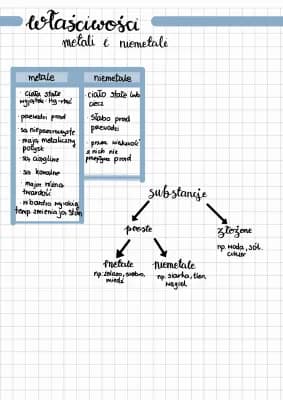 właściwości
metali i niemetale
metale
niemetale
· ciała stałe
wyjątek - Hg - rtęć
· przewodzi prąd
· są nieprzezroczyste
· mają metaliczny
połysk
· są ciągliwe
· są kowalne
· mają różną
twardość
w bardzo wysokiej
temp zmieniają stan
· ciało stałe lub
ciecz
· słabo prąd
przewodzi
· prawie większość
z nich nie
przyjmuje prąd
substancje
proste
złożone
np. woda, sól,
cukier
metale
np. żelazo, srebro,
miedź
niemetale
np. siarka, tlen
węgiel